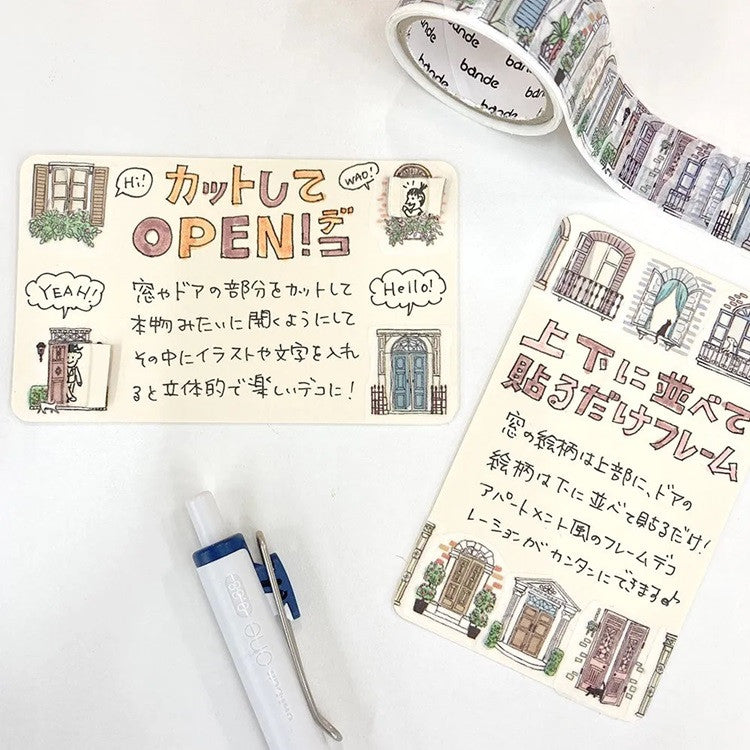 bande
bande
bande
bande
Hi!
カットして
WAO!
OPEN!デコ
YEAH!
Hello!
窓やドアの部分をカットして
本物みたいに開くようにして
その中にイラストや文字を入れ
ると立体的で楽しいデコに!
上下に並べて
貼るだけフレーム
窓の絵柄は上部に、ドアの
絵柄は下に並べて貼るだけ!
アパートメント風のフレームデコ
レーションがカンタンにできます♪
one